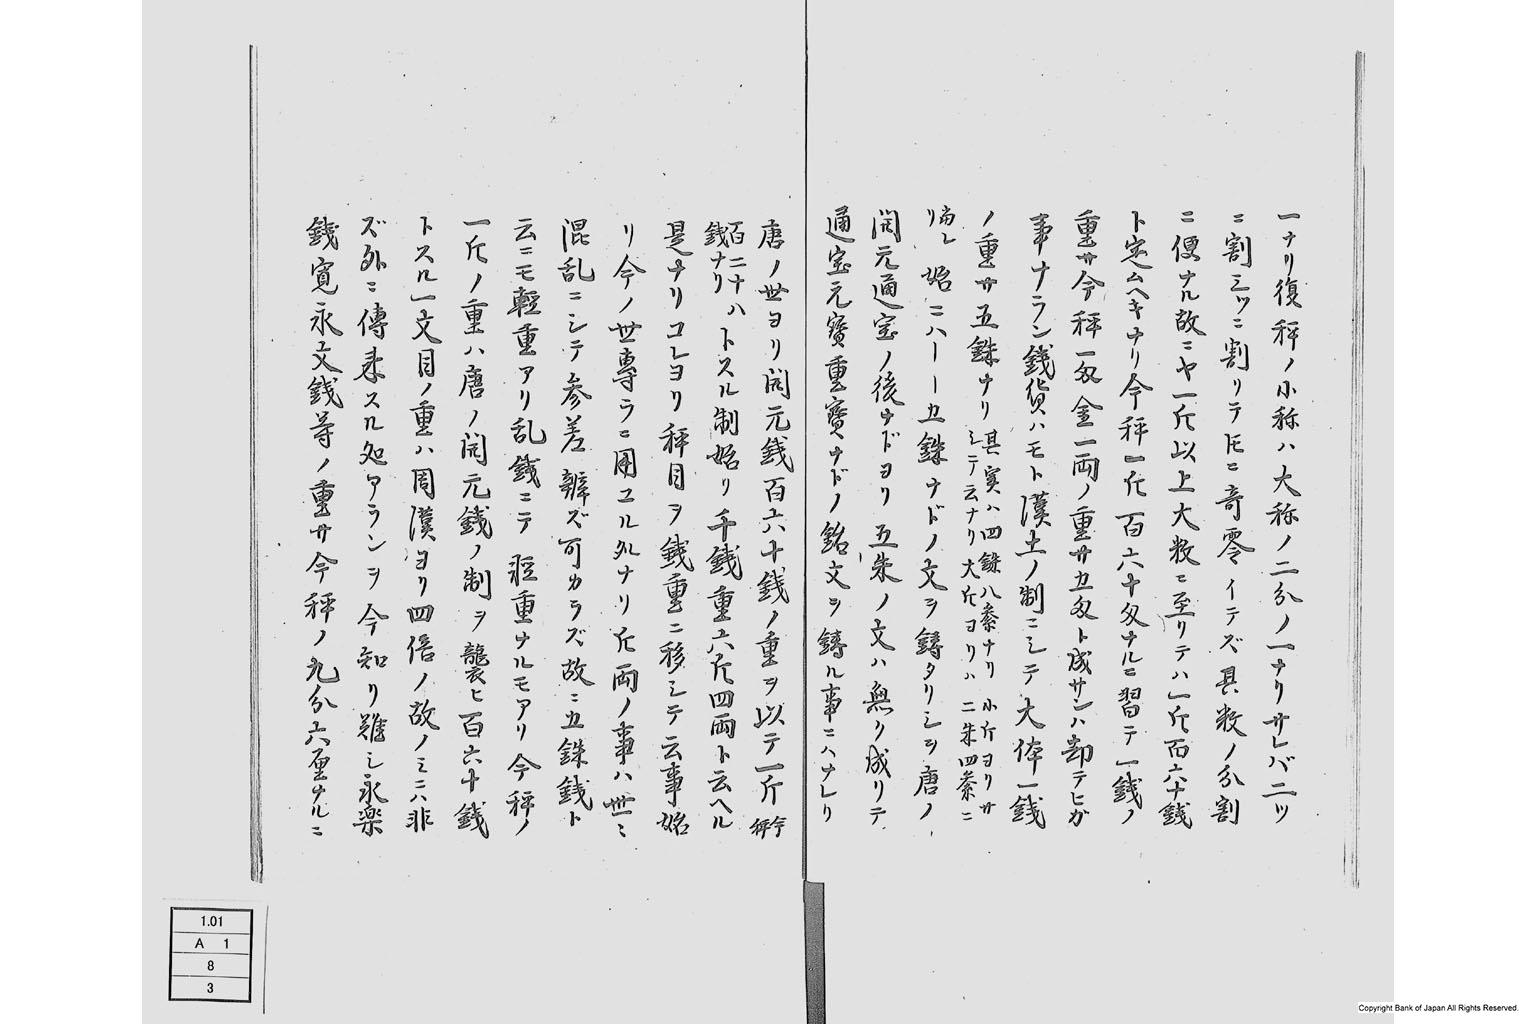 一ナリ復秤ノ小称ハ大称ノ二分ノ一ナリサレバ二ツ
ニ割三ツニ割リテ𪜈ニ奇零イデズ其数ノ分割
ニ便ナル故ニヤ一斤以上大数ニ至リテハ一斤百六十銭
ト定ムヘキナリ今秤一斤百六十匁ナルニ習テ一銭ノ
重サ今秤一匁金一両ノ重サ五匁ト成サンハ却テヒガ
事ナラン銭貨ハモト漢土ノ制ニシテ大体一銭
ノ重サ五銖ナリ其実ハ四銖八絫ナリ小斤ヨリサ
シテ云ナリ大斤ヨリハ二朱四絫ニ
当レリ始ニハ一一五銖ナドノ文ヲ鋳タリシヲ唐ノ
開元通宝ノ後ナドヨリ五朱ノ文ハ無ク成リテ
通宝元寳重寳ナドノ銘文ヲ鋳ル事ニハナレリ
唐ノ世ヨリ開元銭百六十銭ノ重ヲ以テ一斤今秤
百二十八銭ナリトスル制始リ千銭重六斤四両ト云ヘル
是ナリコレヨリ秤目ヲ銭重ニ移シテ云事始
リ今ノ世専ラニ用ユル処ナリ斤両ノ事ハ世ミ
混乱ニシテ参差辨ズ可カラズ故ニ五銖銭ト
云ニモ軽重アリ乱銭ニテ重ナルモアリ今秤ノ
一斤ノ重ハ唐ノ開元銭ノ制ヲ襲ヒ百六十銭
トスル一文目ノ重ハ周漢ヨリ四倍ノ故ノミニハ非
ズ外ニ傳来スル処アランヲ今知リ難シ永楽
銭寛永文銭等ノ重サ今秤ノ九分六厘ナルニ
1.01
A 1
8
3
Copyright Bank of Japan All Rights Reserved.